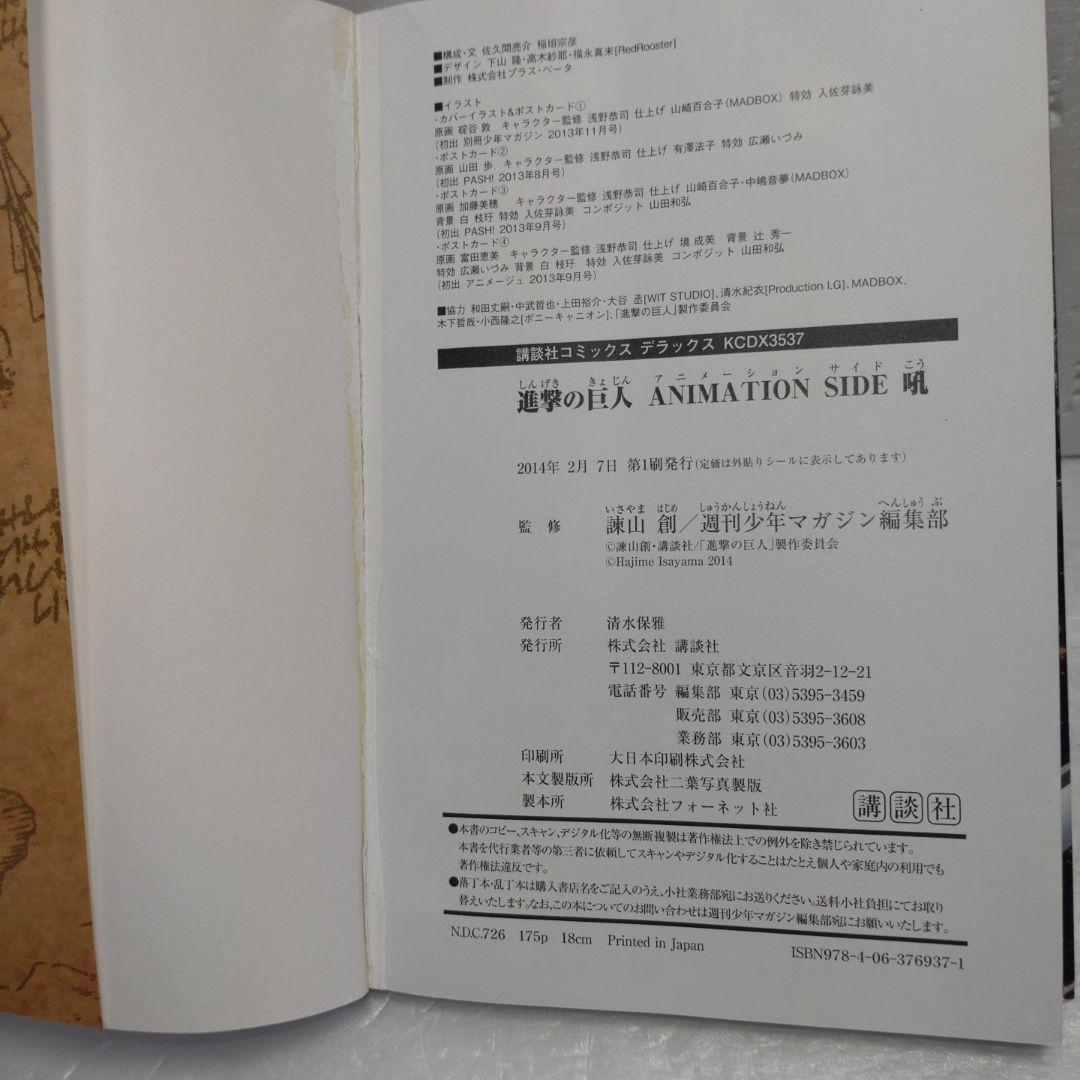 ■構成・文 佐久間亮介 稲垣宗彦
■デザイン 下山 隆・高木紗耶・福永真未[RedRooster]
■制作 株式会社プラス・ベータ
■イラスト
・カバーイラスト&ポストカード①
原画 碇谷 敦 キャラクター監修 浅野恭司 仕上げ 山崎百合子(MADBOX) 特効 入佐芽詠美
(初出 別冊少年マガジン 2013年11月号)
・ポストカード②
原画 山田 歩 キャラクター監修 浅野恭司 仕上げ 有澤法子 特効 広瀬いづみ
(初出 PASH! 2013年8月号)
・ポストカード③
原画 加藤美穂 キャラクター監修 浅野恭司 仕上げ 山崎百合子・中嶋音夢(MADBOX)
背景 白 枝玗 特効 入佐芽詠美 コンポジット 山田和弘
(初出 PASH! 2013年9月号)
・ポストカード④
原画 富田恵美 キャラクター監修 浅野恭司 仕上げ 境 成美 背景 辻 秀一
特効 広瀬いづみ 背景 白 枝玗 特効 入佐芽詠美 コンポジット 山田和弘
(初出 アニメージュ 2013年9月号)
■協力 和田丈嗣・中武哲也・上田裕介・大谷 丞[WIT STUDIO]、清水紀衣[Production I.G]、MADBOX、
木下哲哉・小西隆之[ポニーキャニオン]、「進撃の巨人」製作委員会
講談社コミックス デラックス KCDX3537
しんげき きょじん アニメーション サイド こう
進撃の巨人 ANIMATION SIDE 吼
2014年 2月 7日 第1刷発行(定価は外貼りシールに表示してあります)
いさやま はじめ しゅうかんしょうねん へんしゅう ぶ
監 修 諫山 創/週刊少年マガジン編集部
©諫山創・講談社/「進撃の巨人」製作委員会
©Hajime Isayama 2014
発行者 清水保雅
発行所 株式会社 講談社
〒112-8001 東京都文京区音羽2-12-21
電話番号 編集部 東京(03)5395-3459
販売部 東京(03)5395-3608
業務部 東京(03)5395-3603
印刷所 大日本印刷株式会社
本文製版所 株式会社二葉写真製版
製本所 株式会社フォーネット社
講談社
●本書のコピー、スキャン、デジタル化等の無断複製は著作権法上での例外を除き禁じられています。
本書を代行業者等の第三者に依頼してスキャンやデジタル化することはたとえ個人や家庭内の利用でも
著作権法違反です。
●落丁本・乱丁本は購入書店名をご記入のうえ、小社業務部宛にお送りください。送料小社負担にてお取り
替えいたします。なお、この本についてのお問い合わせは週刊少年マガジン編集部宛にお願いいたします。
N.D.C.726 175p 18cm Printed in Japan
ISBN978-4-06-376937-1